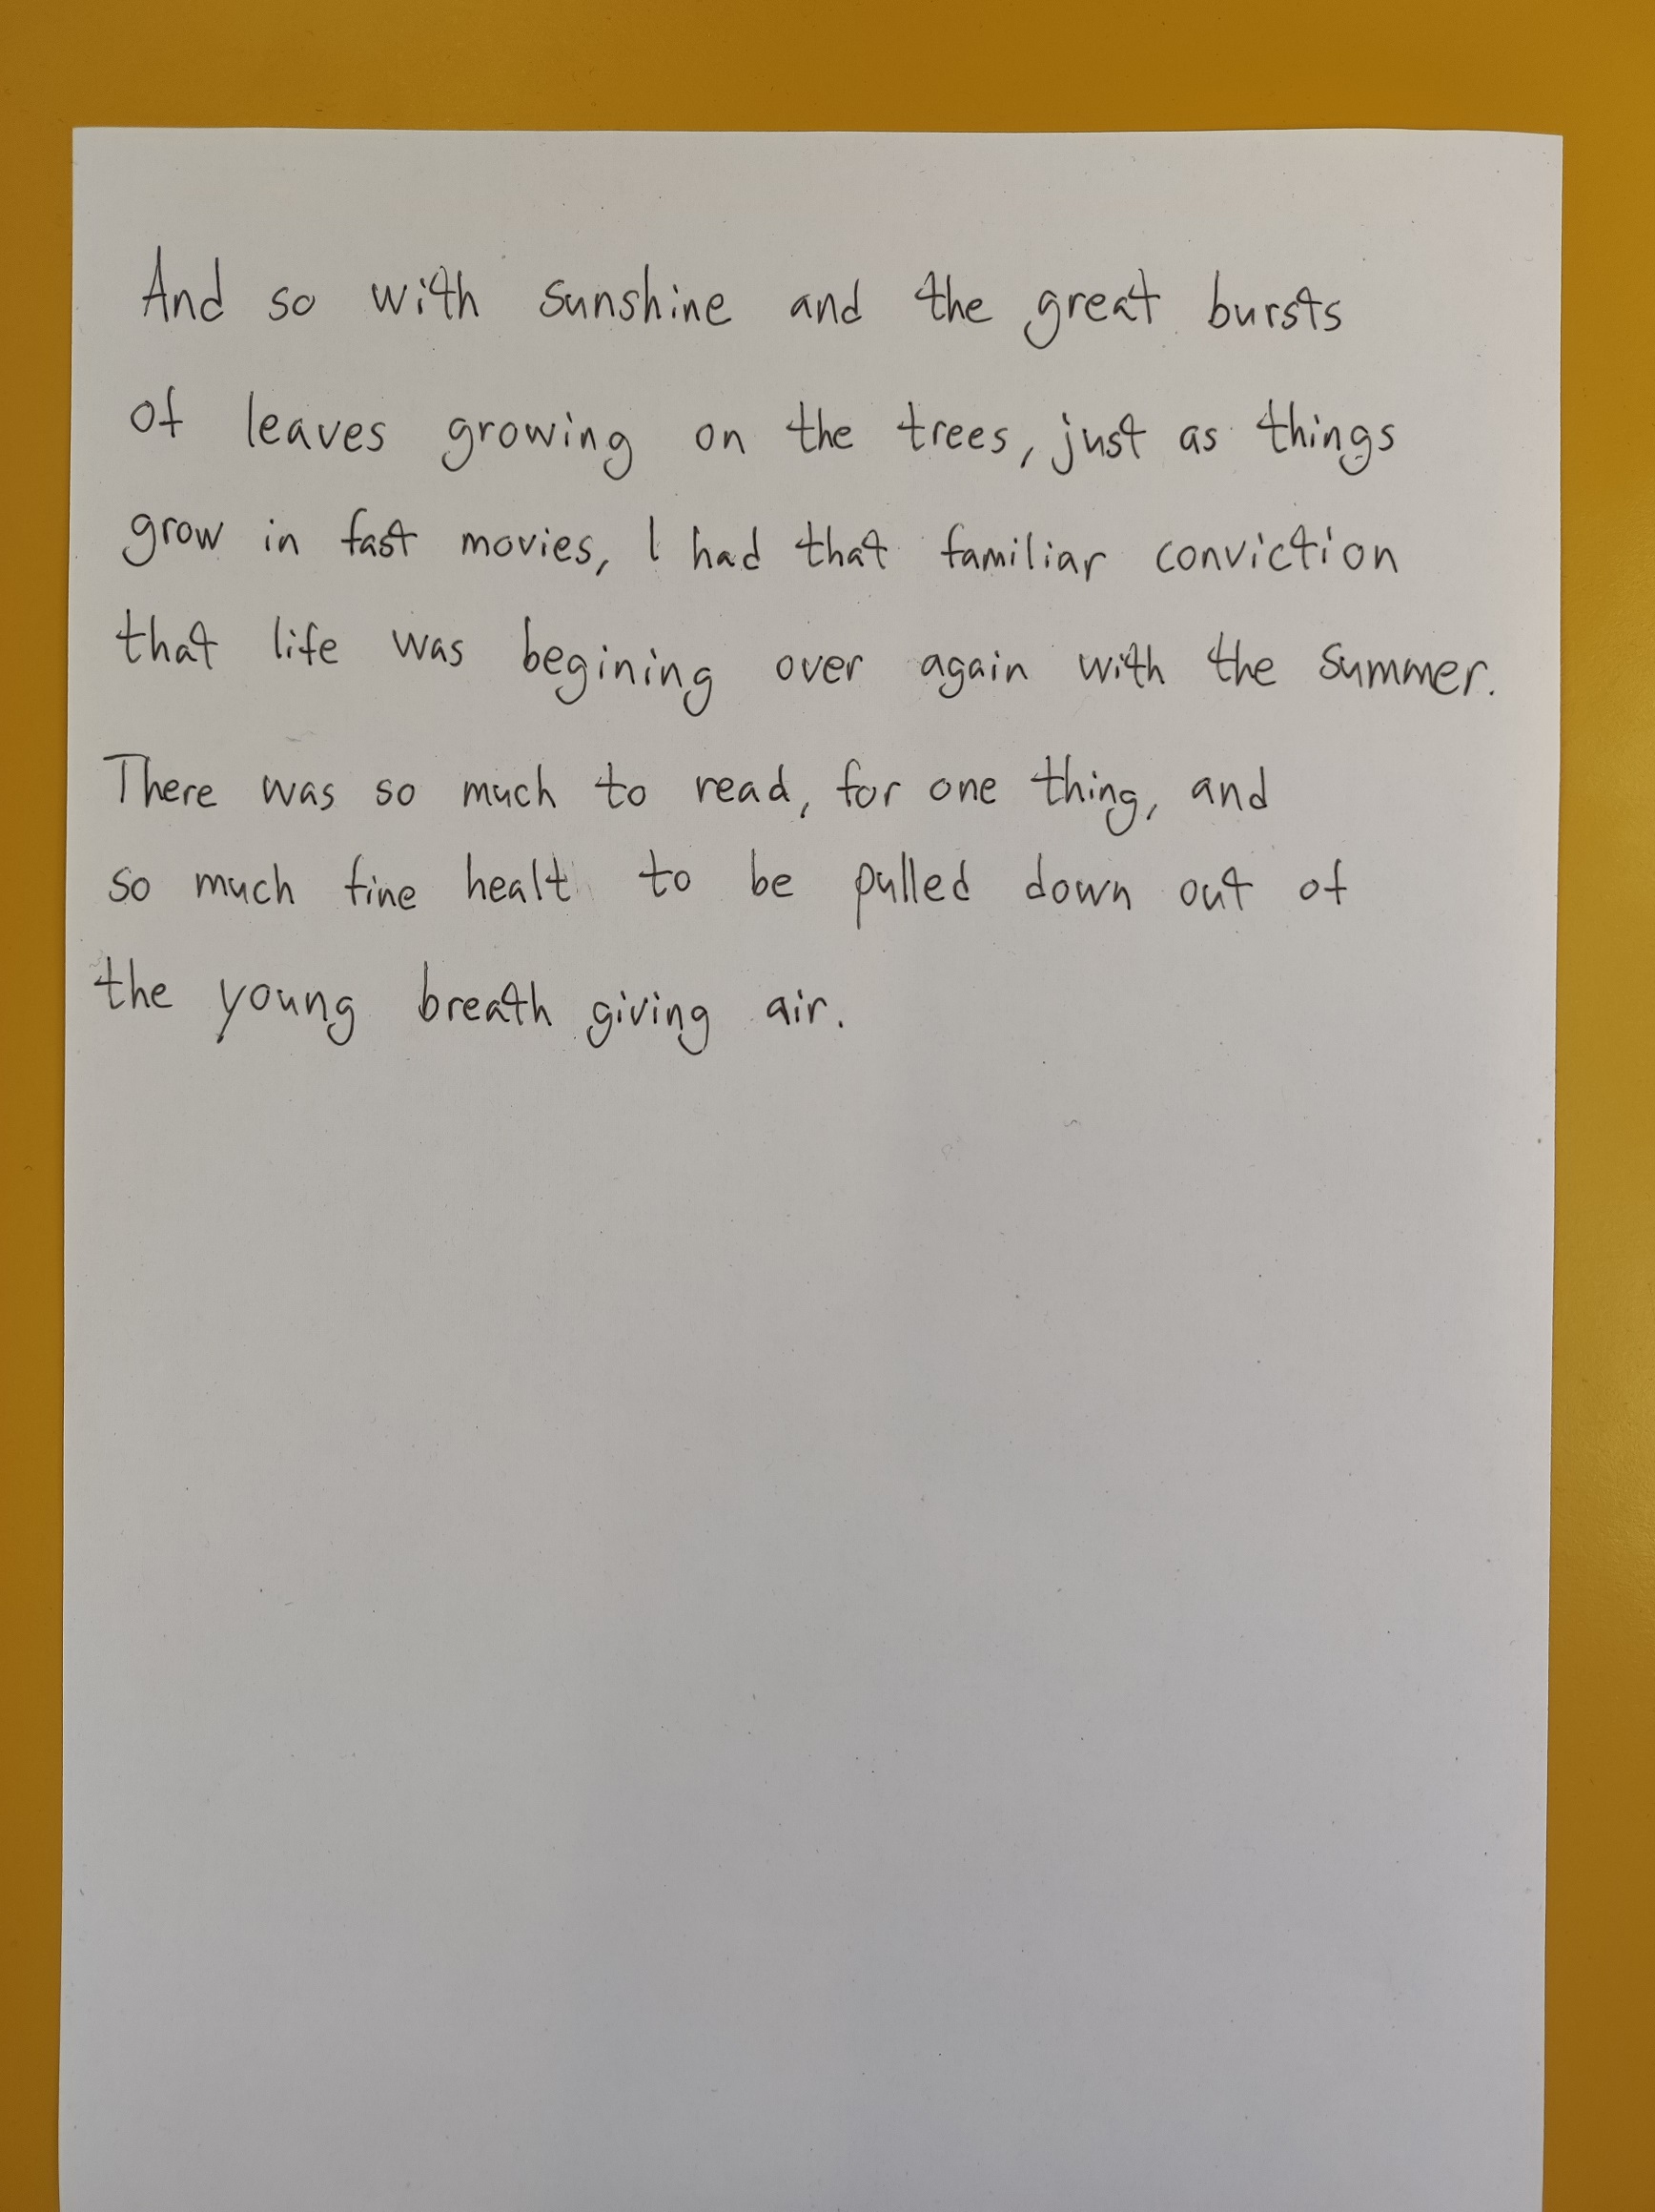 And so with sunshine and the great bursts
of leaves growing on the trees, just as things
grow in fast movies, I had that familiar conviction
that life was begining over again with the summer.
There was so much to read, for one thing, and
so much fine healt to be pulled down out of
the young breath giving air.